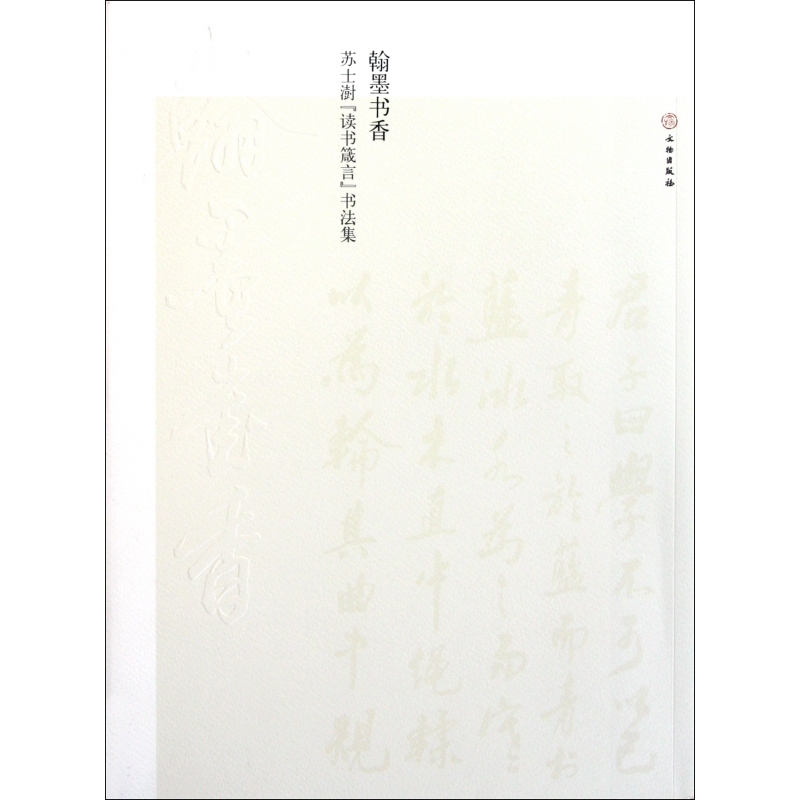 文物出版社
翰墨书香
苏士澍『读书箴言』书法集
君子曰學不可以已
青取之於藍而青於
藍冰水為之而寒
於水木直中繩輮
以為輪其曲中規
翰墨書香